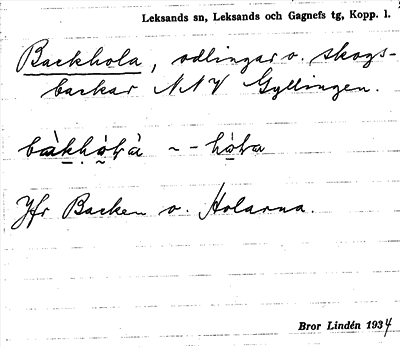 Leksands sn, Leksands och Gagnefs tg, Kopp. l.
Backhola, odlingar o. skogs-
backar NNV Gyllingen.
Jfr Backen o. Holarna.
Bror Lindén 1934